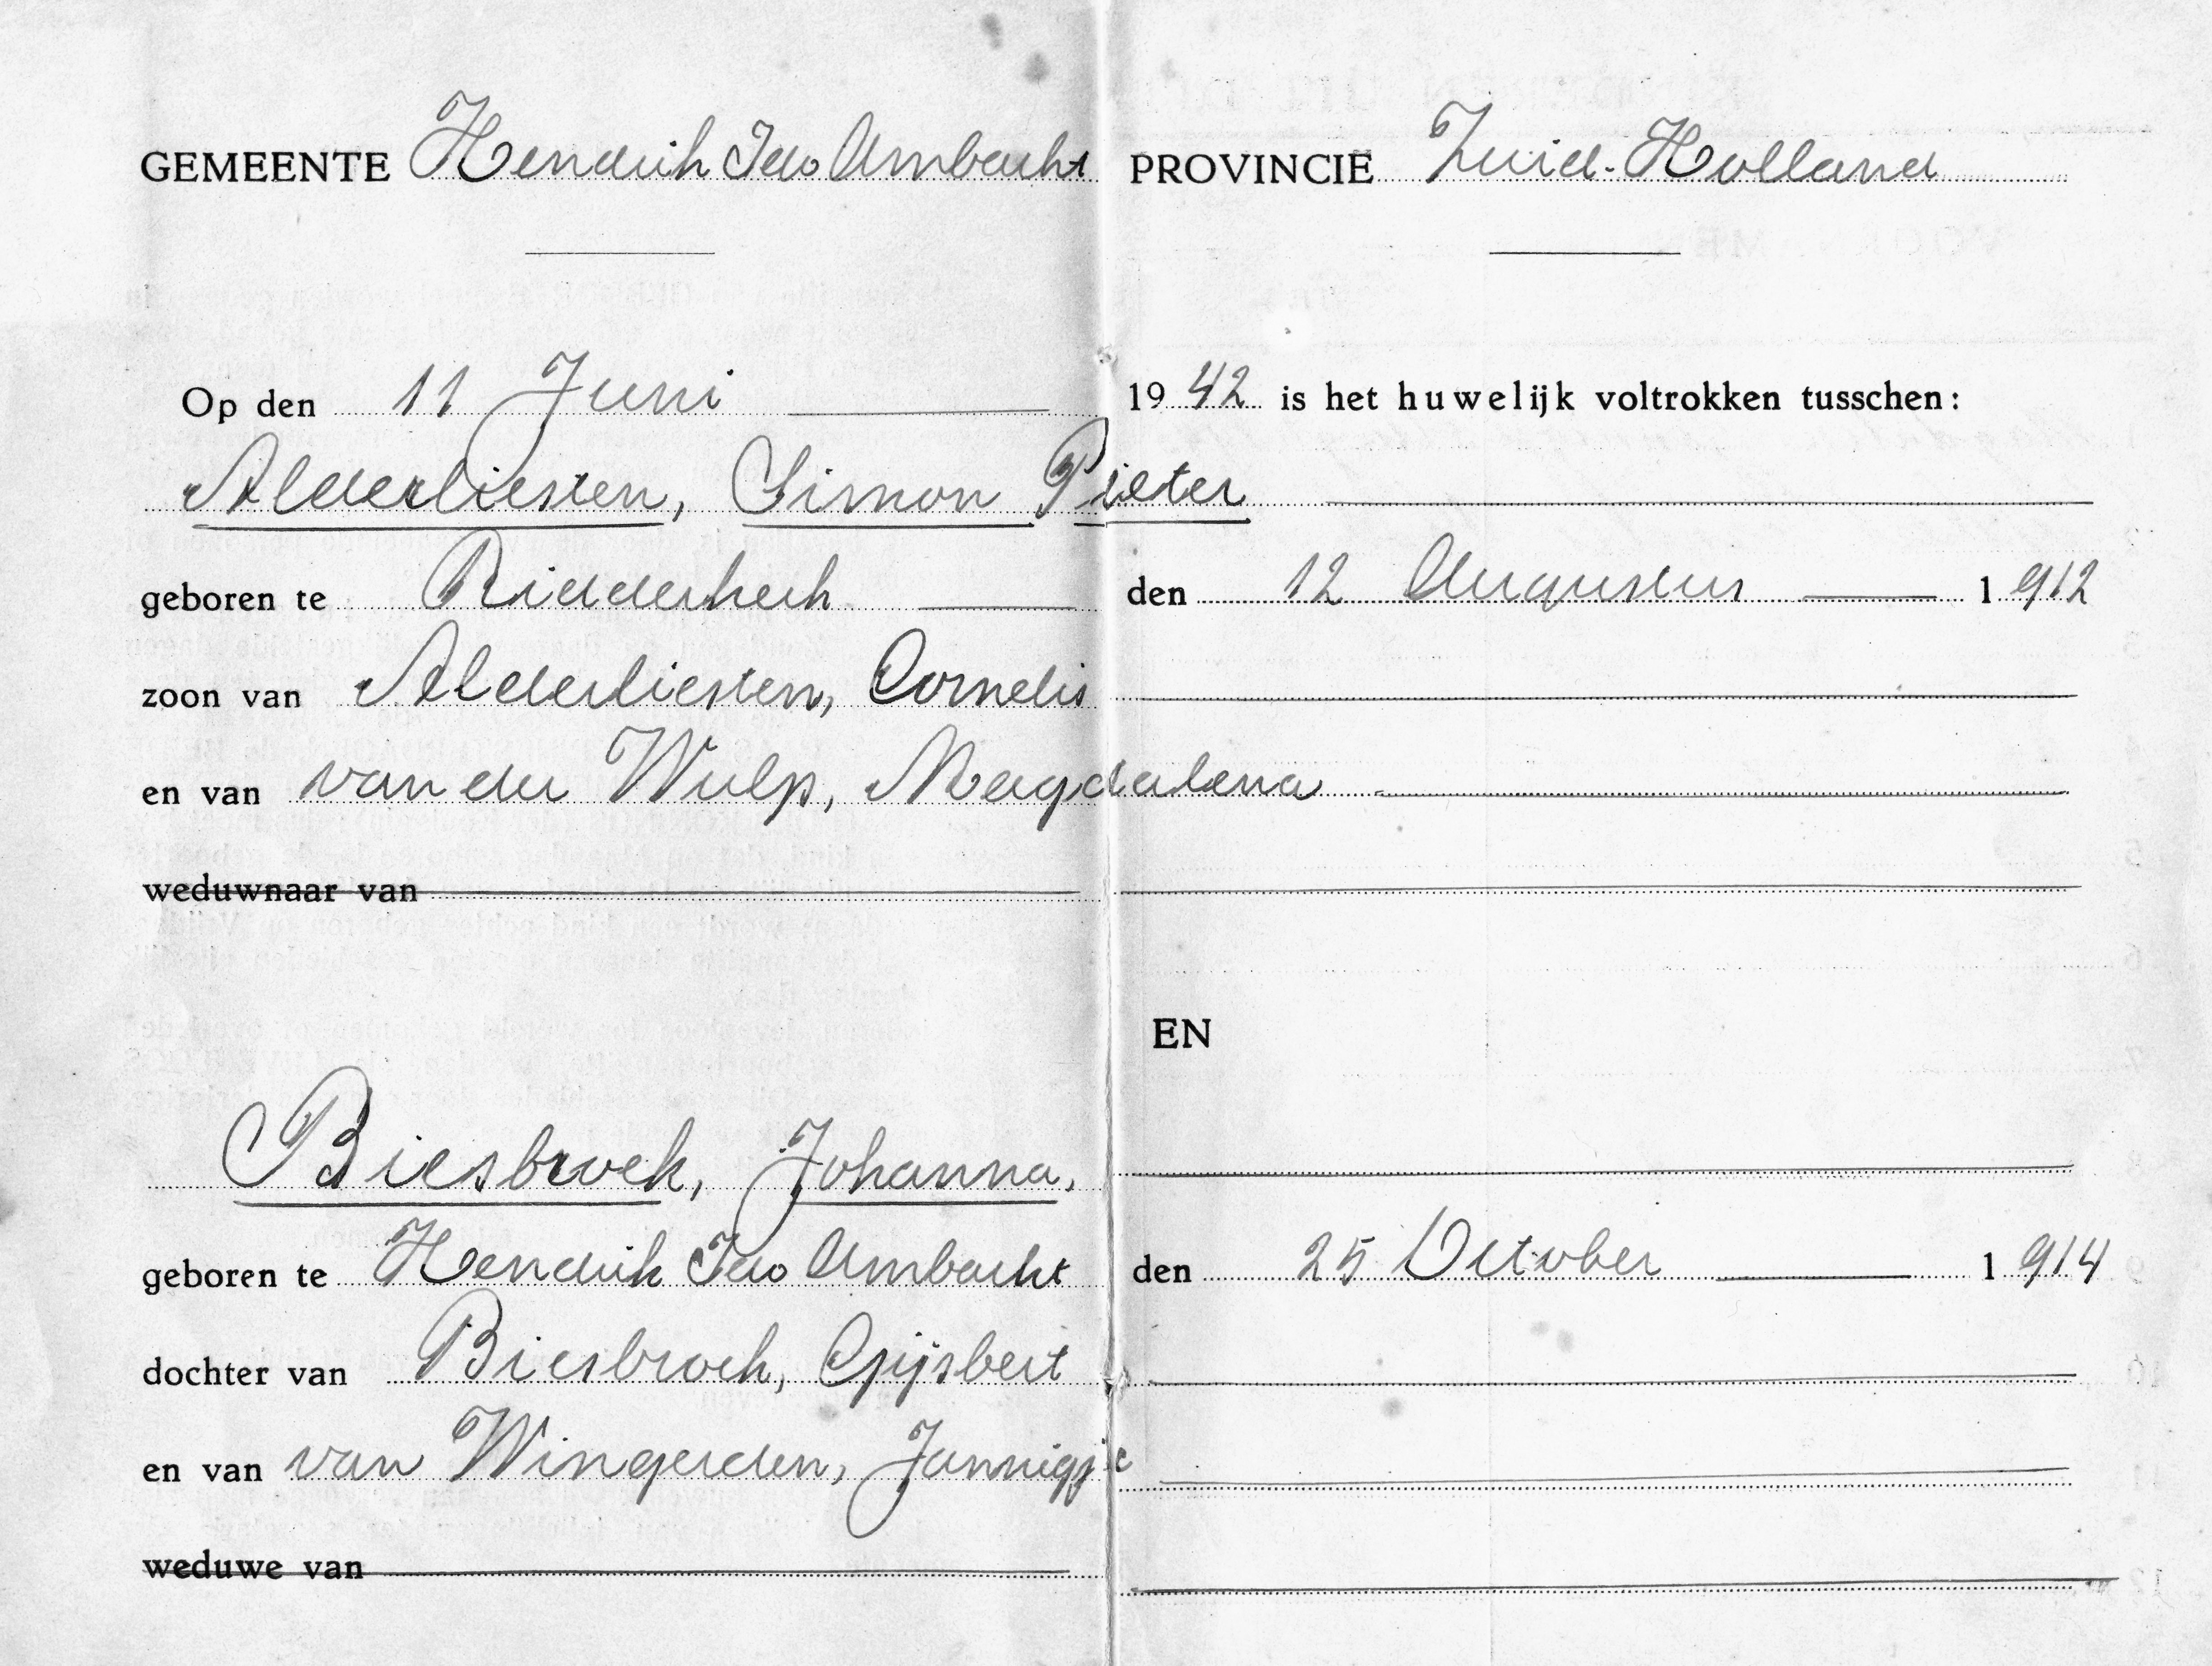 GEMEENTE Hendrik Ido Ambacht PROVINCIE Zuid-Holland
Op den 11 Juni 1942 is het huwelijk voltrokken tusschen:
Alderliesten, Simon Pieter
geboren te Ridderkerk den 12 Augustus 1912
zoon van Alderliesten, Cornelis
en van van der Wulp, Magdalena
weduwnaar van
EN
Biesbroek, Johanna,
geboren te Hendrik Ido Ambacht den 25 October 1914
dochter van Biesbroek, Gijsbert
en van van Wingerden, Jannigje
weduwe van